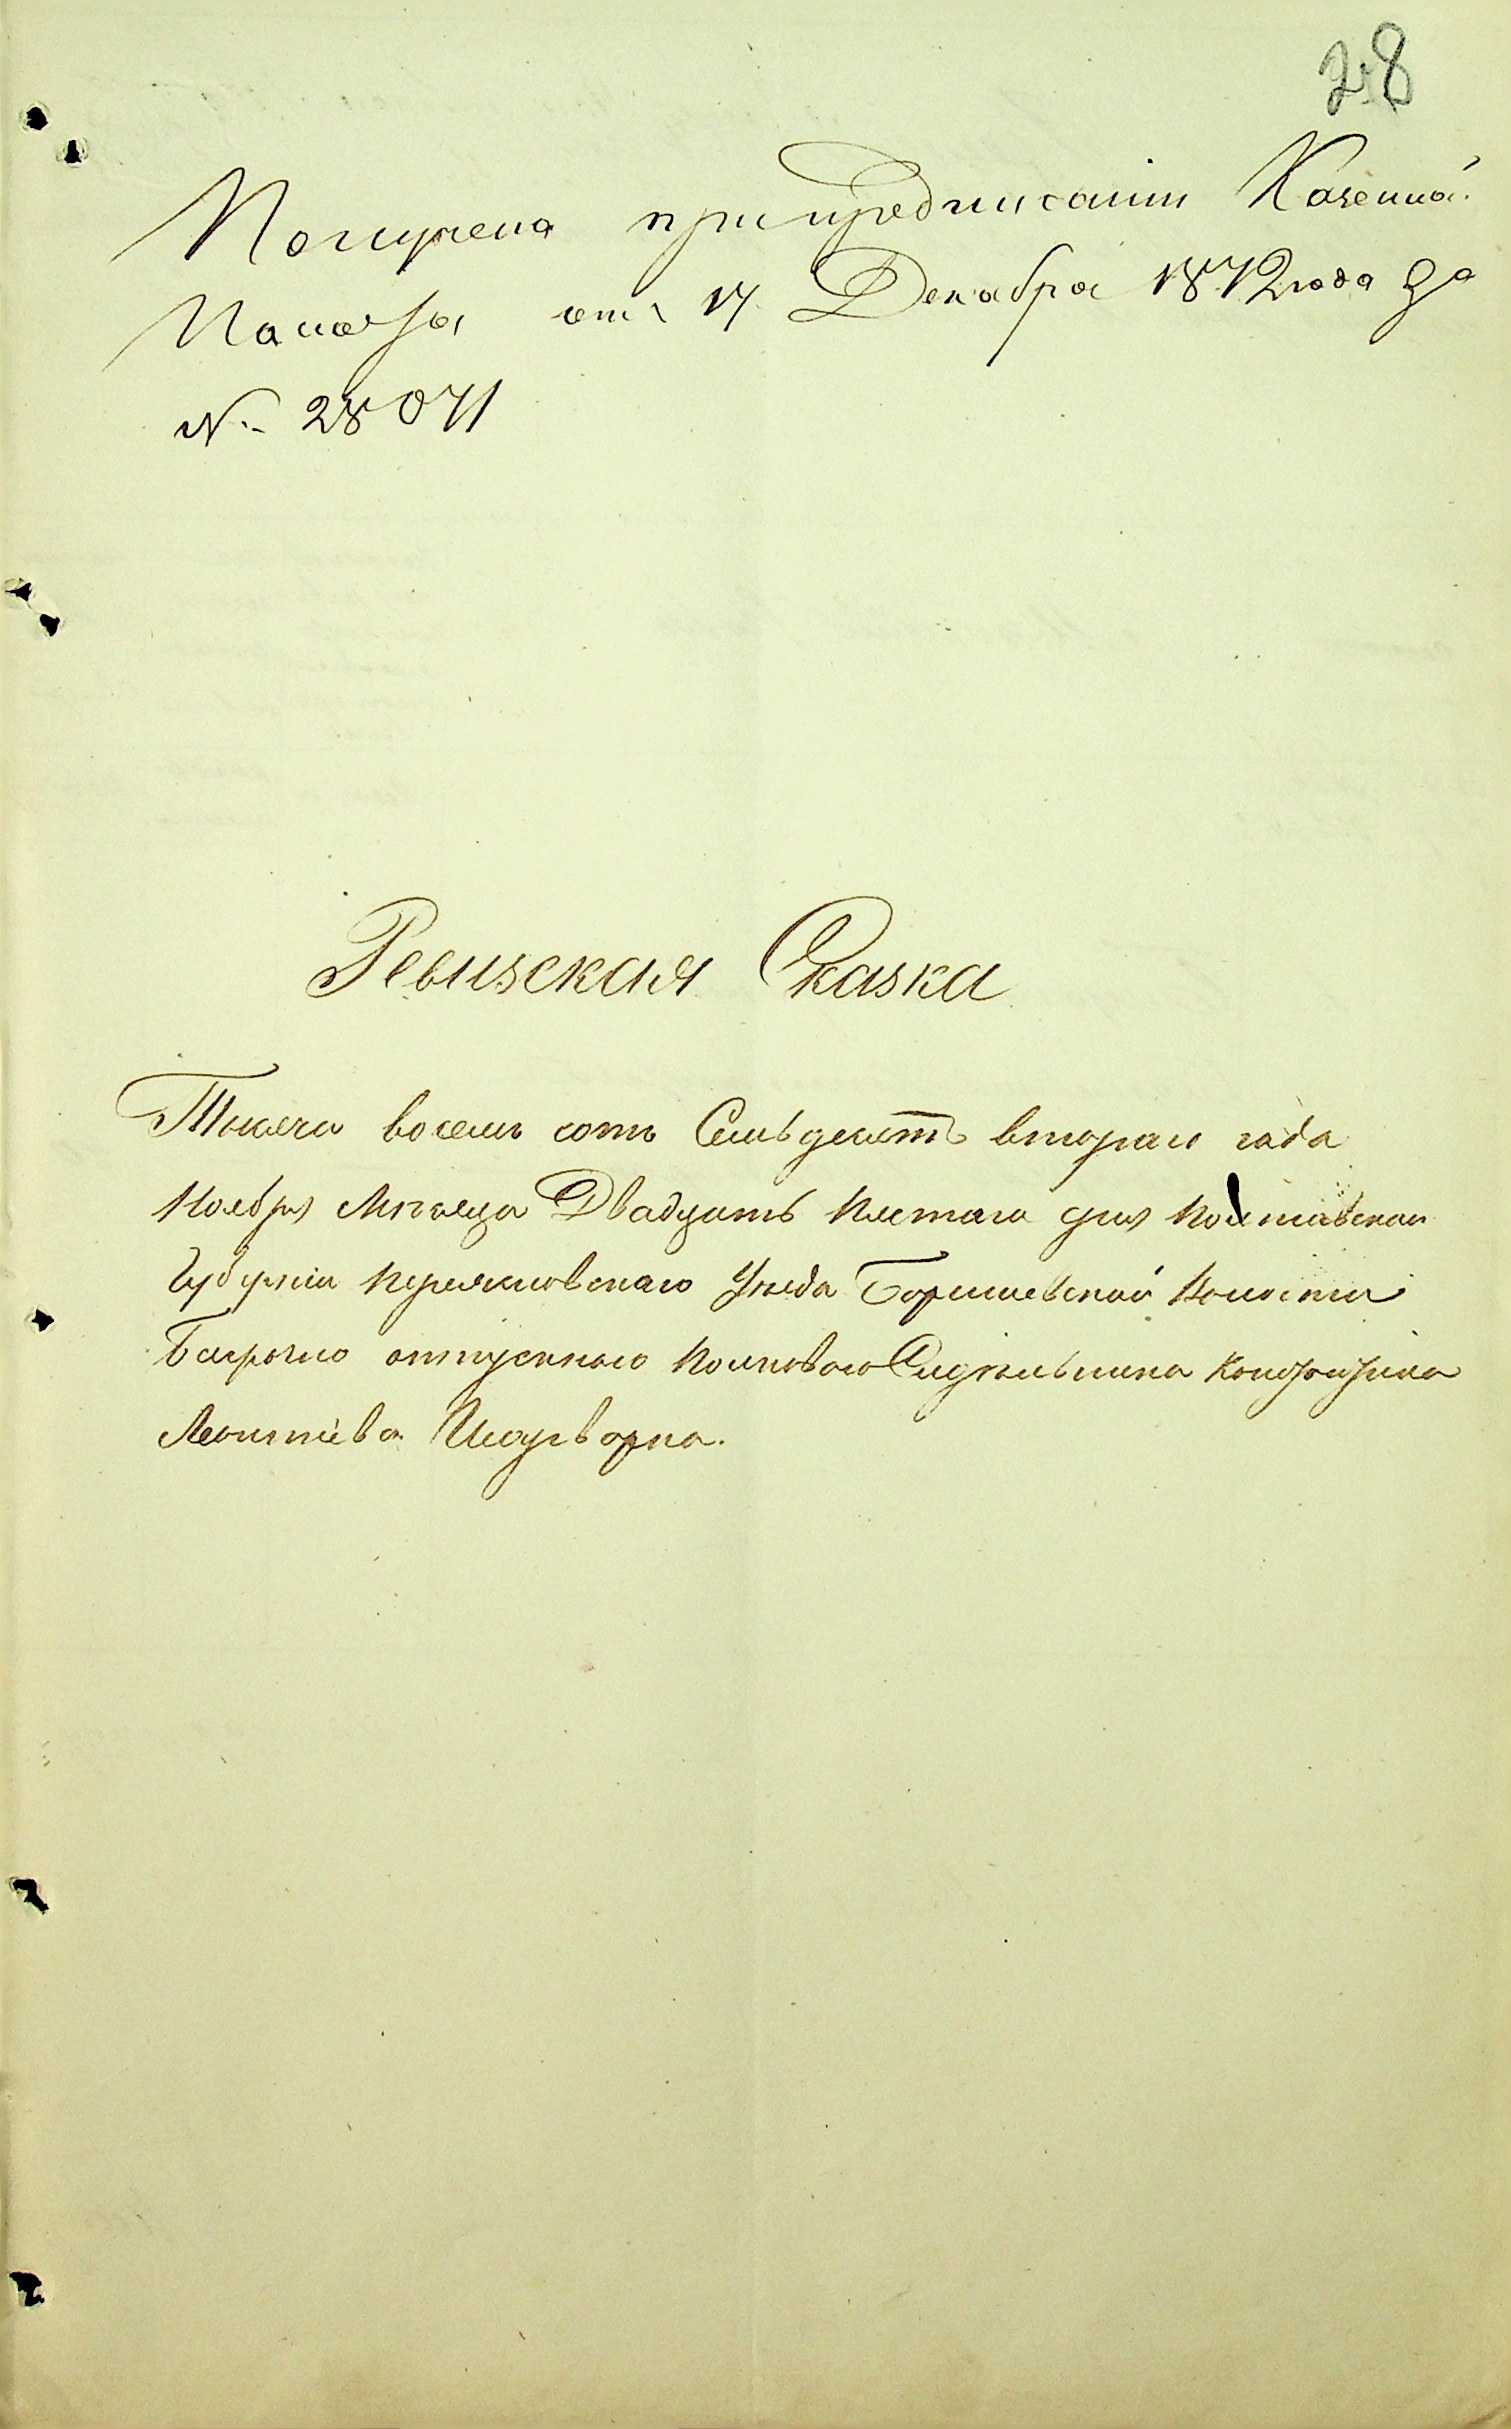 28
Получена при предписании Казенной
Палаты от 17 Декабря 1872 года за
№ 28071
Ревизская Сказка
Тысяча восемь сотъ Семьдесятъ втораго года
Ноября Месяца Двадцать шестаго дня Полтавской
Губернии Переяславскаго Уезда Борисшевской Волости
Безсрочно отпускнаго Полковаго Седельника Кондратия
Леонтиева